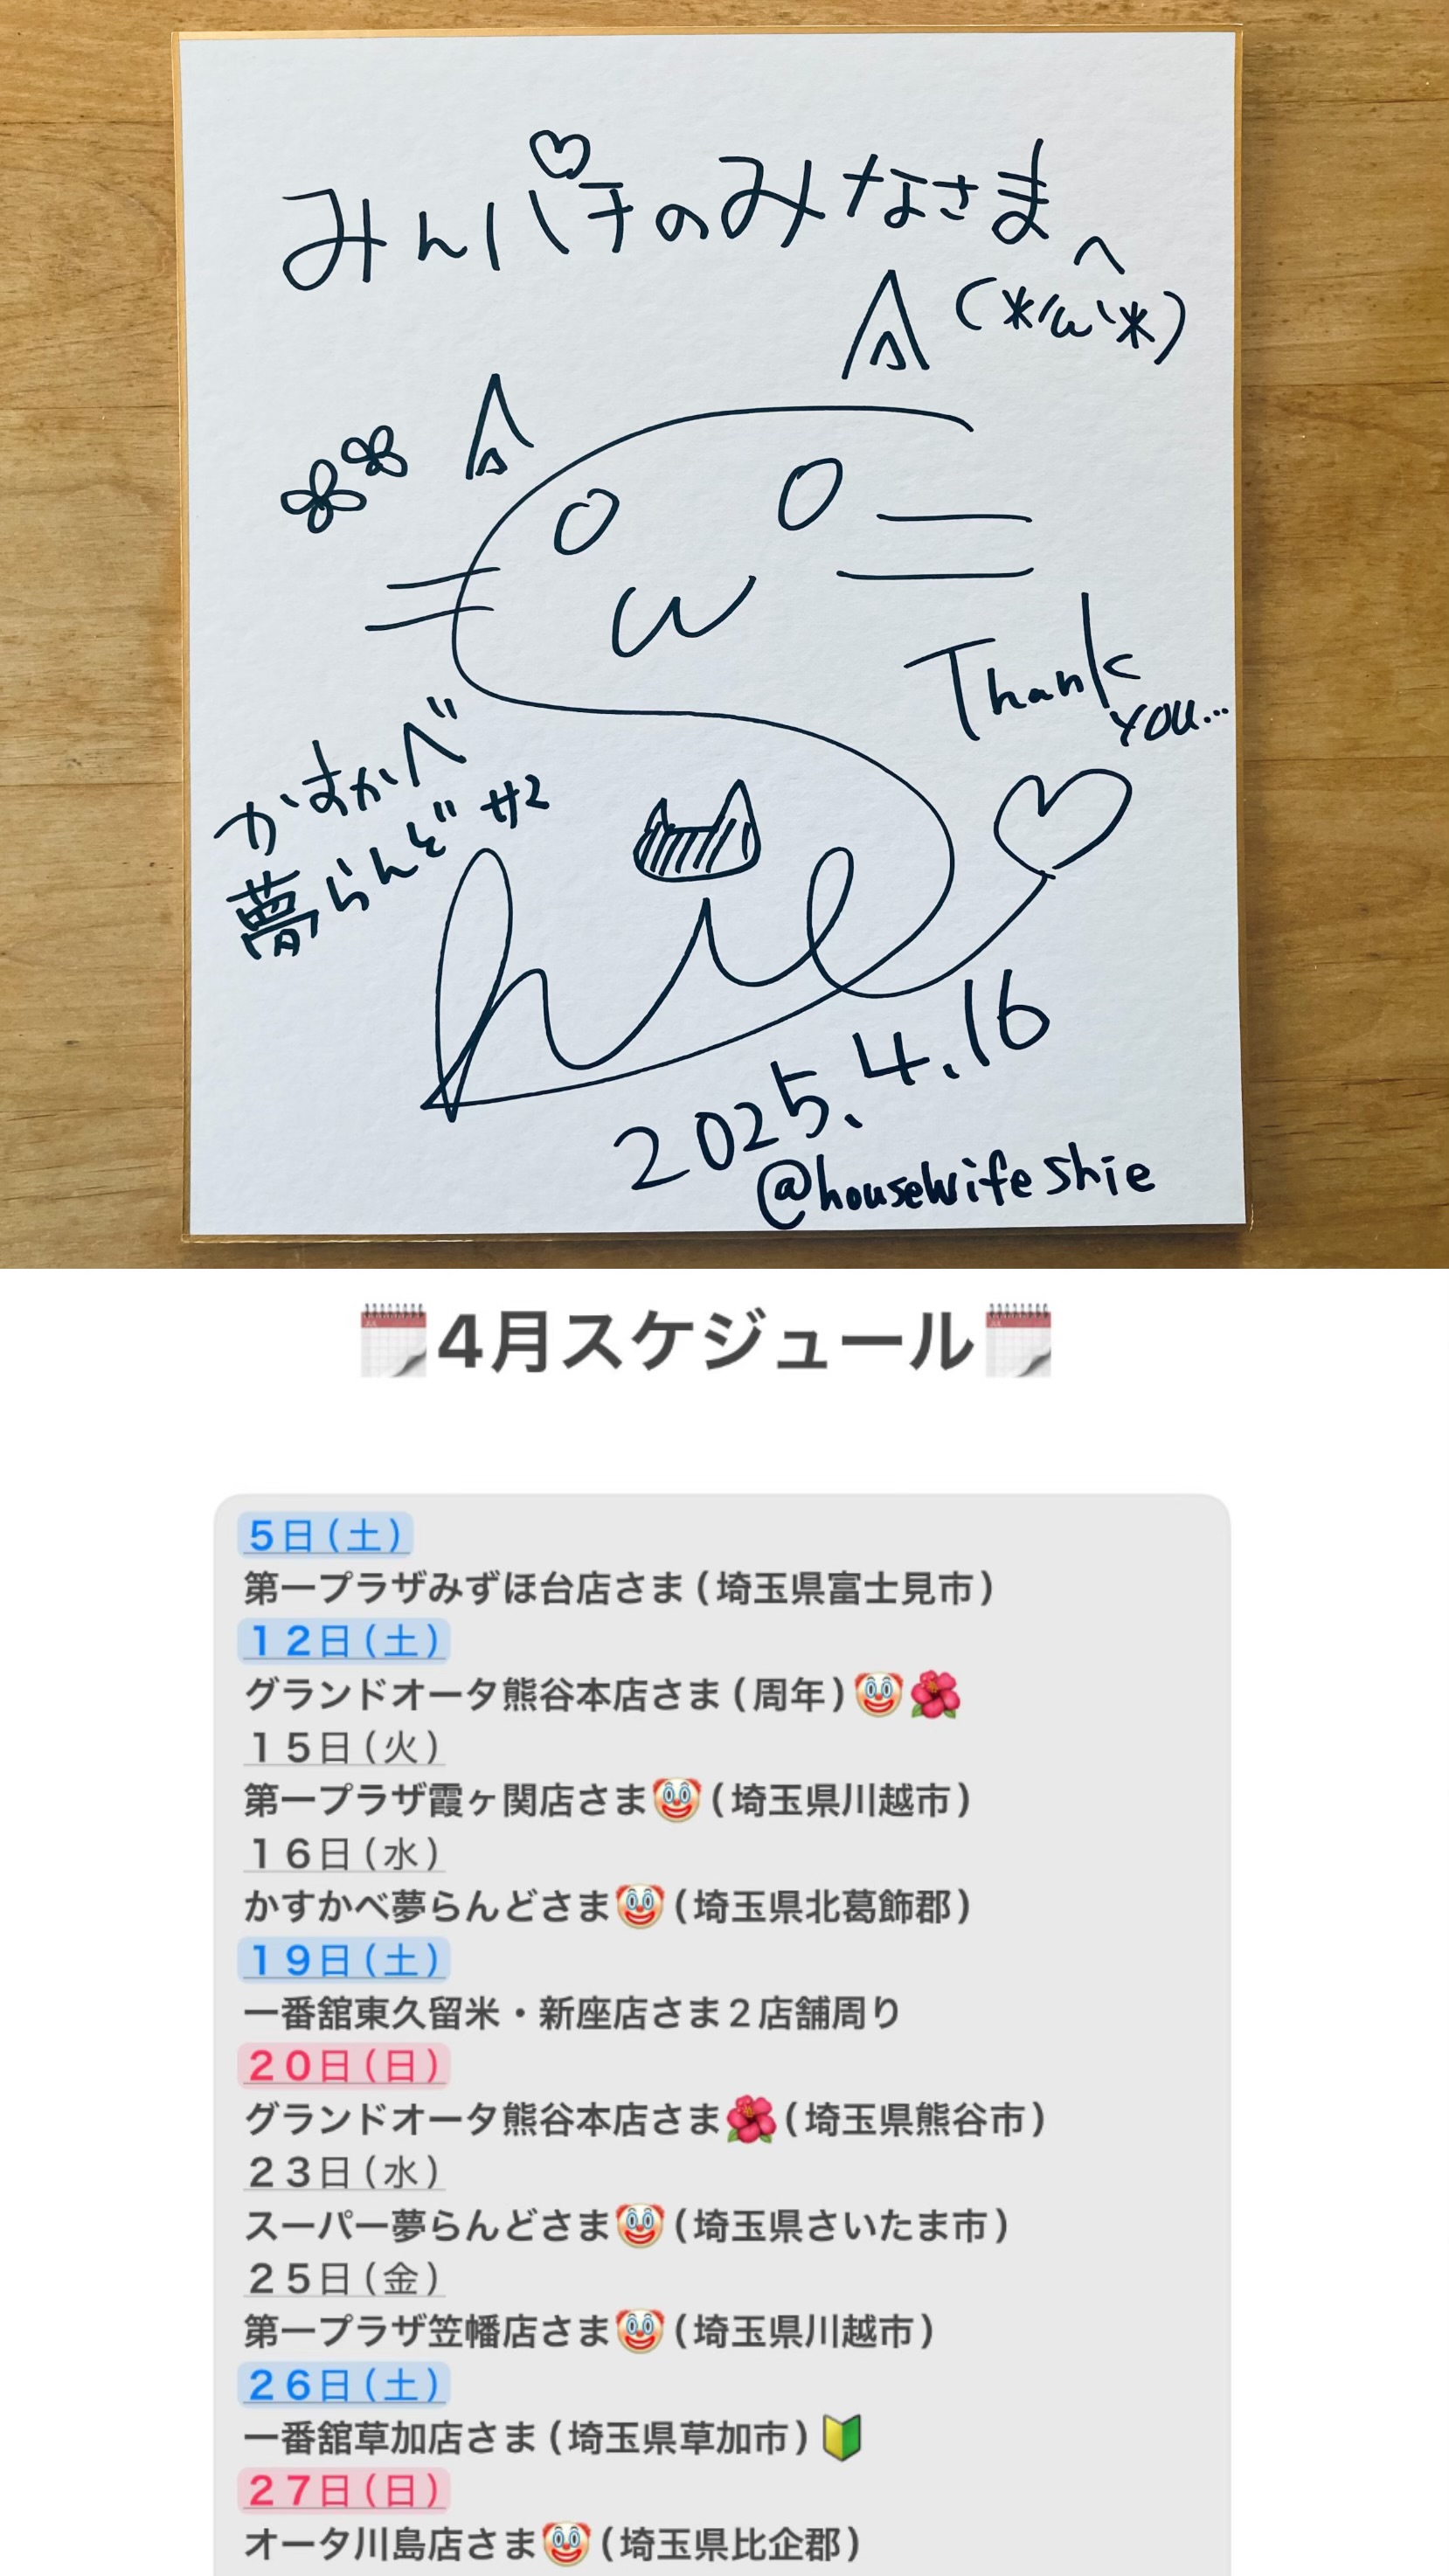 みんパチのみなさまへ
(*´ω`*)
Thank
you...
かすかべ
夢らんど #2
Shie
2025.4.16
@housewifeshie
4月スケジュール
5日(土)
第一プラザみずほ台店さま(埼玉県富士見市)
12日(土)
グランドオータ熊谷本店さま(周年)🤡🌺
15日(火)
第一プラザ霞ヶ関店さま🤡(埼玉県川越市)
16日(水)
かすかべ夢らんどさま🤡(埼玉県北葛飾郡)
19日(土)
一番舘東久留米・新座店さま2店舗周り
20日(日)
グランドオータ熊谷本店さま🌺(埼玉県熊谷市)
23日(水)
スーパー夢らんどさま🤡(埼玉県さいたま市)
25日(金)
第一プラザ笠幡店さま🤡(埼玉県川越市)
26日(土)
一番舘草加店さま(埼玉県草加市)🔰
27日(日)
オータ川島店さま🤡(埼玉県比企郡)